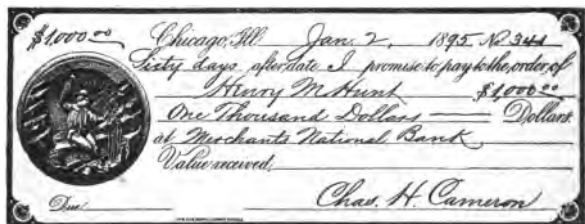 $1,000 00 Chicago, Ill. Jan. 2, 1895 No 344
Sixty days after date I promise to pay to the order of
Henry M Hunt $1,000 00
One Thousand Dollars Dollars
at Merchants National Bank
Value received.
Due Chas. H. Cameron